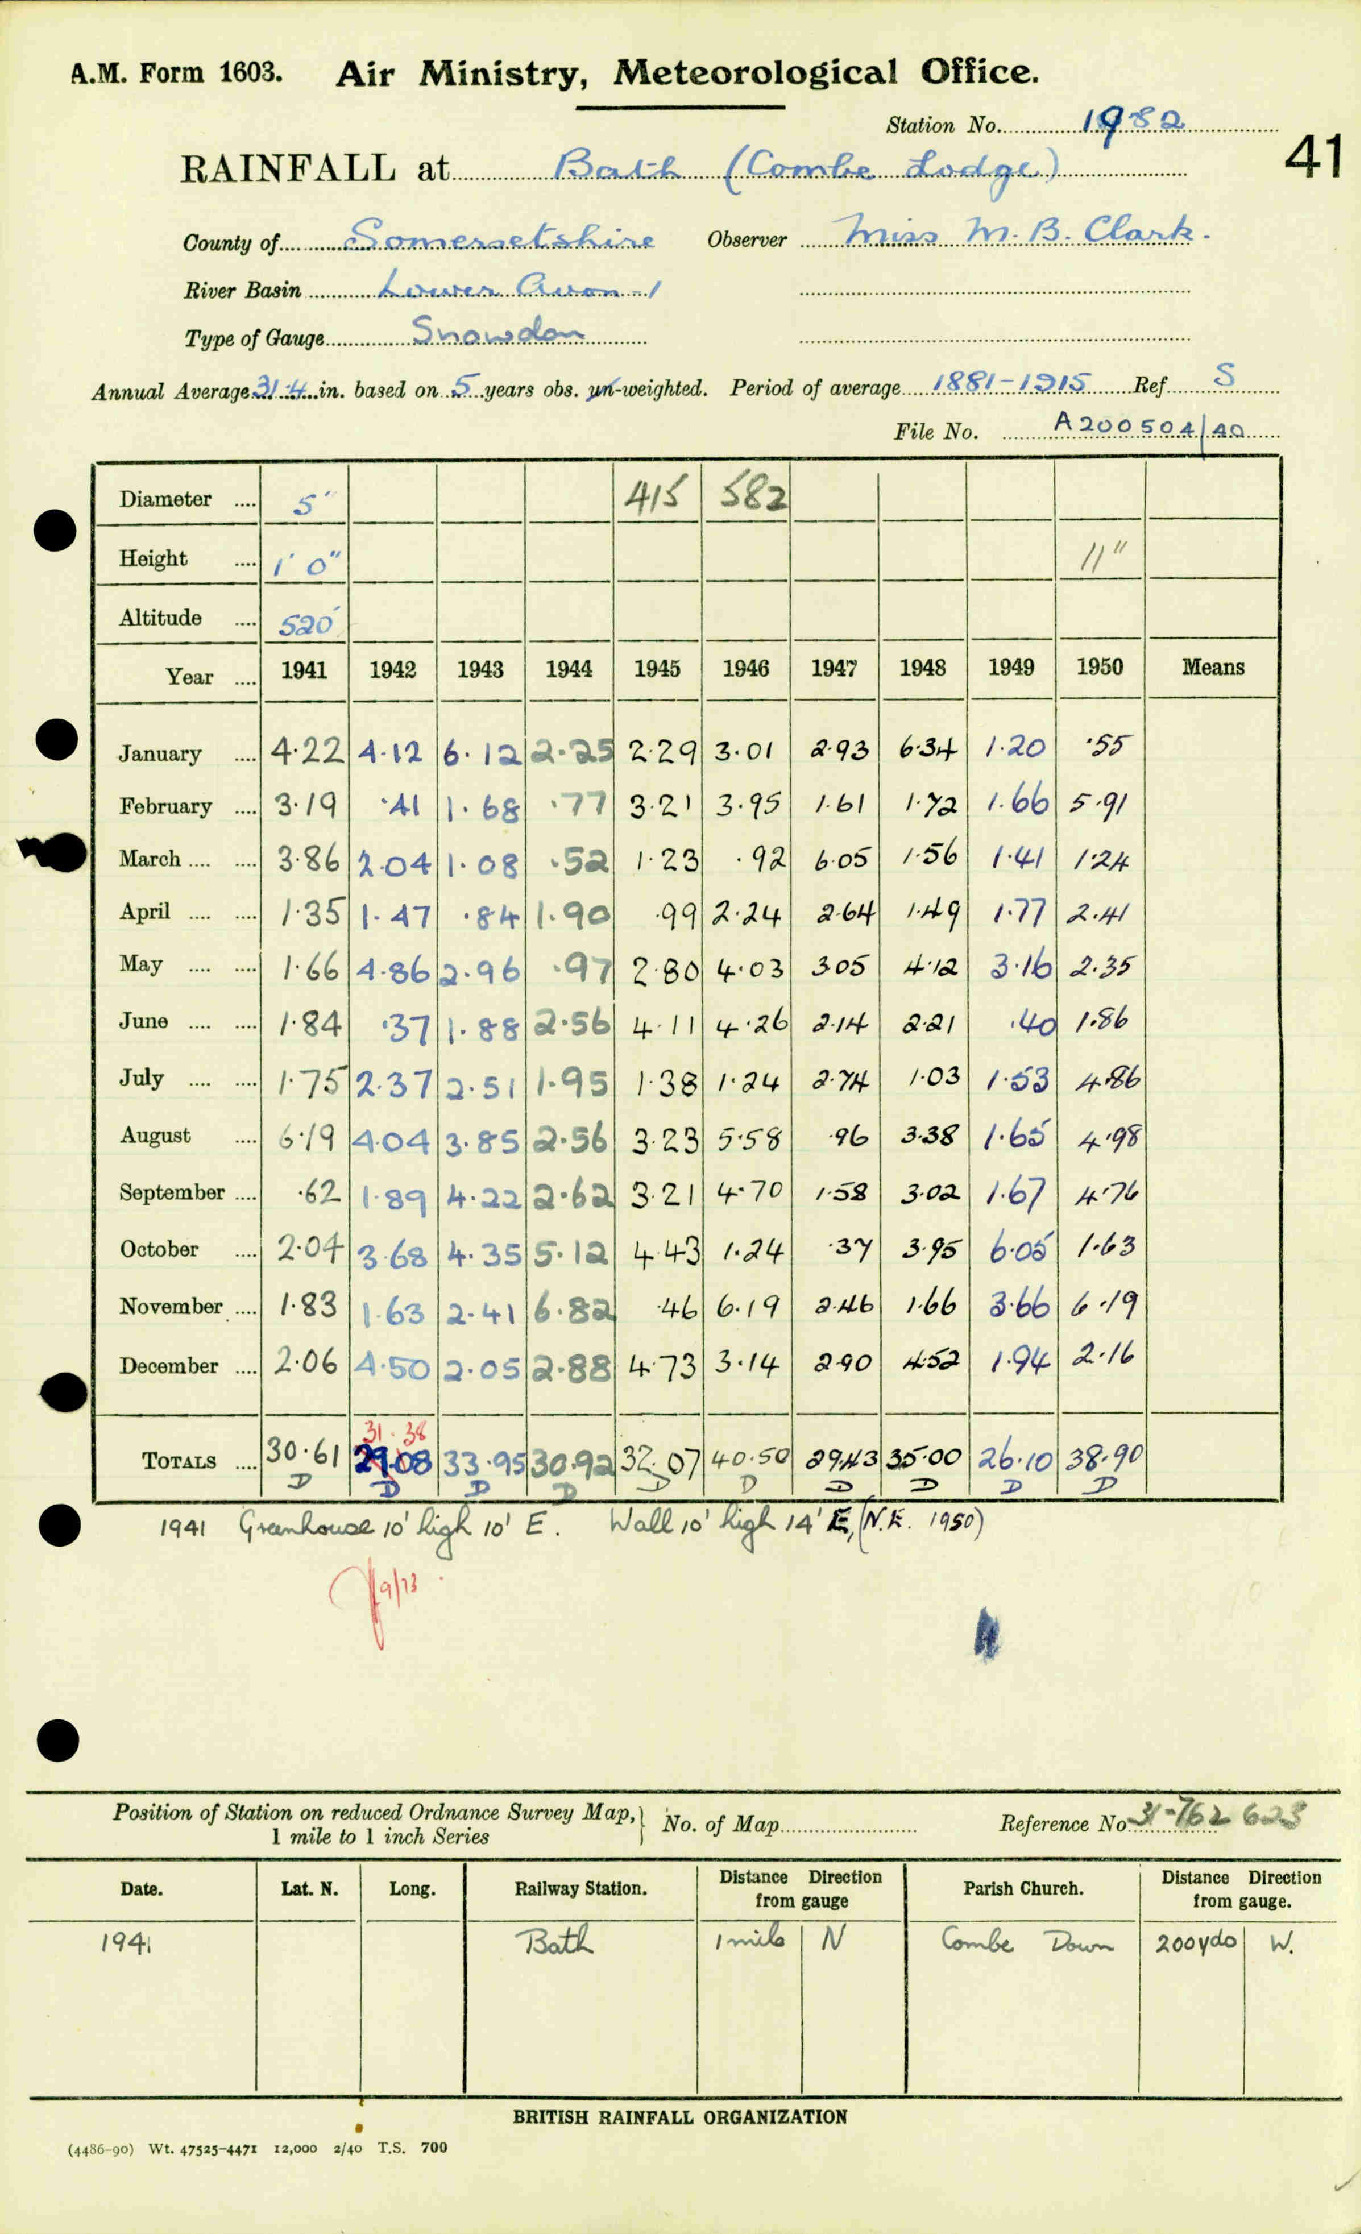 A.M. Form 1603. Air Ministry, Meteorological Office.
Station No. 1982
41
RAINFALL at Bath (Combe Lodge)
County of Somersetshire Observer Miss M. B. Clark.
River Basin Lower Avon-1
Type of Gauge Snowdon
Annual Average 31.4 in. based on 5 years obs. un-weighted. Period of average 1881-1915 Ref S
File No. A200504/40
Diameter .... 5" 415 582
Height .... 1' 0" 11"
Altitude .... 520'
Year .... 1941 1942 1943 1944 1945 1946 1947 1948 1949 1950 Means
January .... 4.22 4.12 6.12 2.25 2.29 3.01 2.93 6.34 1.20 .55
February .... 3.19 .41 1.68 .77 3.21 3.95 1.61 1.72 1.66 5.91
March .... .... 3.86 2.04 1.08 .52 1.23 .92 6.05 1.56 1.41 1.24
April .... .... 1.35 1.47 .84 1.90 .99 2.24 2.64 1.49 1.77 2.41
May .... .... 1.66 4.86 2.96 .97 2.80 4.03 3.05 4.12 3.16 2.35
June .... .... 1.84 .37 1.88 2.56 4.11 4.26 2.14 2.21 .40 1.86
July .... .... 1.75 2.37 2.51 1.95 1.38 1.24 2.74 1.03 1.53 4.86
August .... 6.19 4.04 3.85 2.56 3.23 5.58 .96 3.38 1.65 4.98
September .... .62 1.89 4.22 2.62 3.21 4.70 1.58 3.02 1.67 4.76
October .... 2.04 3.68 4.35 5.12 4.43 1.24 .37 3.95 6.05 1.63
November .... 1.83 1.63 2.41 6.82 .46 6.19 2.46 1.66 3.66 6.19
December .... 2.06 4.50 2.05 2.88 4.73 3.14 2.90 4.52 1.94 2.16
31.38
TOTALS .... 30.61 29.08 33.95 30.92 32.07 40.50 29.43 35.00 26.10 38.90
D D D D D D D D D D
1941 Greenhouse 10' high 10' E. Wall 10' high 14' E, (N.E. 1950)
9/73
Position of Station on reduced Ordnance Survey Map, } No. of Map Reference No 31-762 623
1 mile to 1 inch Series
Date. Lat. N. Long. Railway Station. Distance Direction from gauge Parish Church. Distance Direction from gauge.
1941 Bath 1 mile N Combe Down 200yds W.
BRITISH RAINFALL ORGANIZATION
(4486-90) Wt. 47525-4471 12,000 2/40 T.S. 700